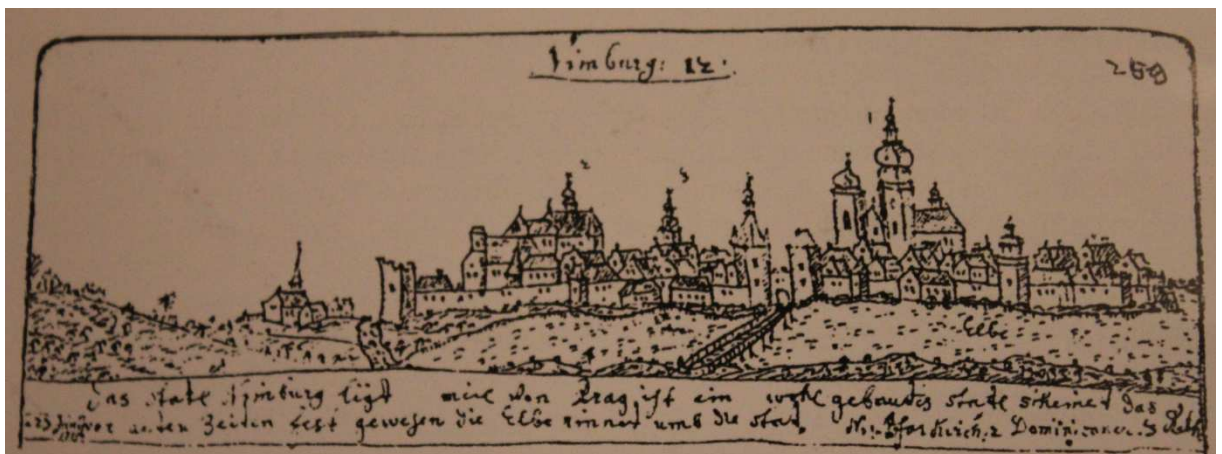 Nimburg: 12.
259
1
2
3
Elbe
Das statl Nimburg ligt meil von Prag ist ein wohl gebautes statl scheinet das
vor alten Zeiten fest gewesen die Elbe rinnet umb die stat. N: 1 Pfarkirch. 2 Dominicaner. 3 Rath